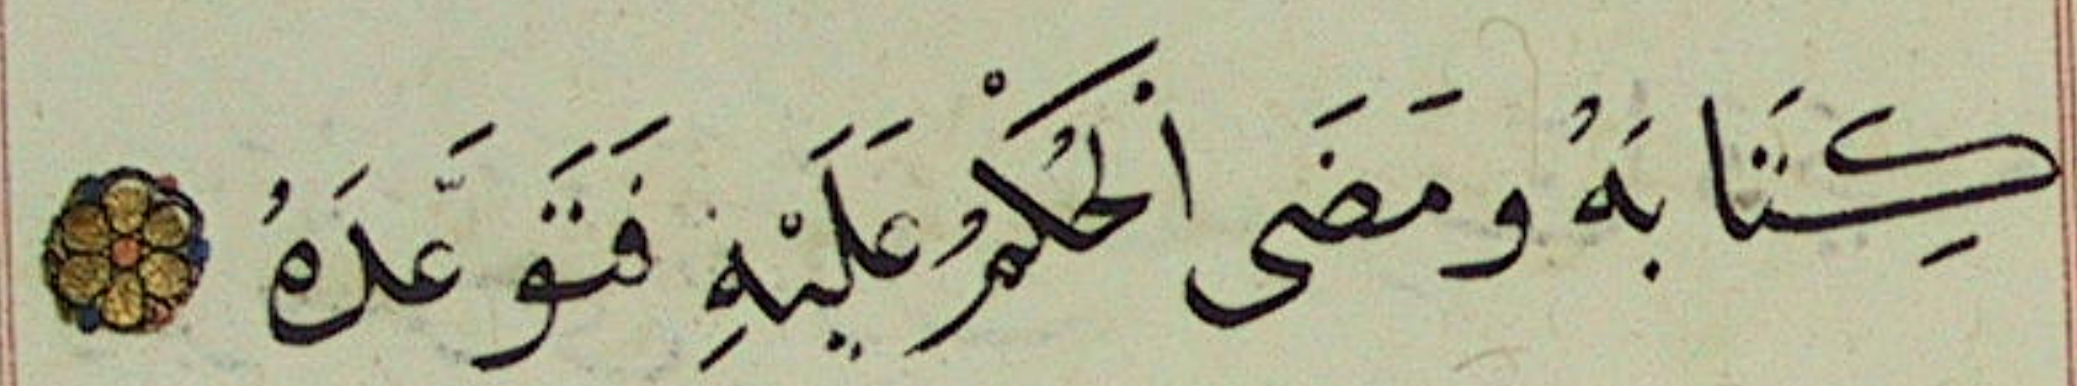 كِتَابَهُ وَمَضَى الْحُكْمُ عَلَيْهِ فَتَوَعَّدَهُ